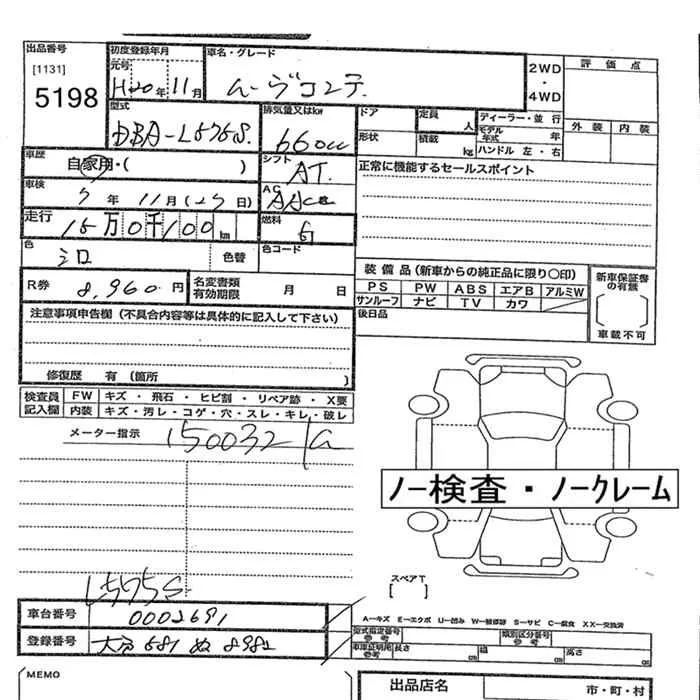 出品番号
[1131]
5198
初度登録年月
元号
H20年11月
車名・グレード
ムーヴコンテ
2WD
・
4WD
評価点
外装 内装
型式
DBA-L575S
排気量又はkw
660cc
ドア
形状
定員 人
積載 kg
ディーラー・並行
モデル年式 年
ハンドル 左・右
車歴
自家用・( )
シフト
AT
正常に機能するセールスポイント
車検
年11月(25日)
AC
AAC
走行
15万0千100km
燃料
G
色
シロ
色替
色コード
装備品(新車からの純正品に限り○印)
PS PW ABS エアB アルミW
サンルーフ ナビ TV カワ
新車保証書の有無
車載不可
R券
8,960円
名変書類有効期限 月 日
後日品
注意事項申告欄(不具合内容等は具体的に記入して下さい)
修復歴 有(箇所 )
検査員記入欄
FW キズ・飛石・ヒビ割・リペア跡・X要
内装 キズ・汚レ・コゲ・穴・スレ・キレ・破レ
メーター指示 150032
ノー検査・ノークレーム
スペアT
[ ]
L575S
車台番号 0002691
登録番号 大分581ぬ8982
A−キズ E−エクボ U−凹み W−補修跡 S−サビ C−腐食 XX−交換済
型式指定番号 参考
類別区分番号 参考
車庫証明用 参考
長さ cm 幅 cm 高さ cm
MEMO
出品店名
市・町・村